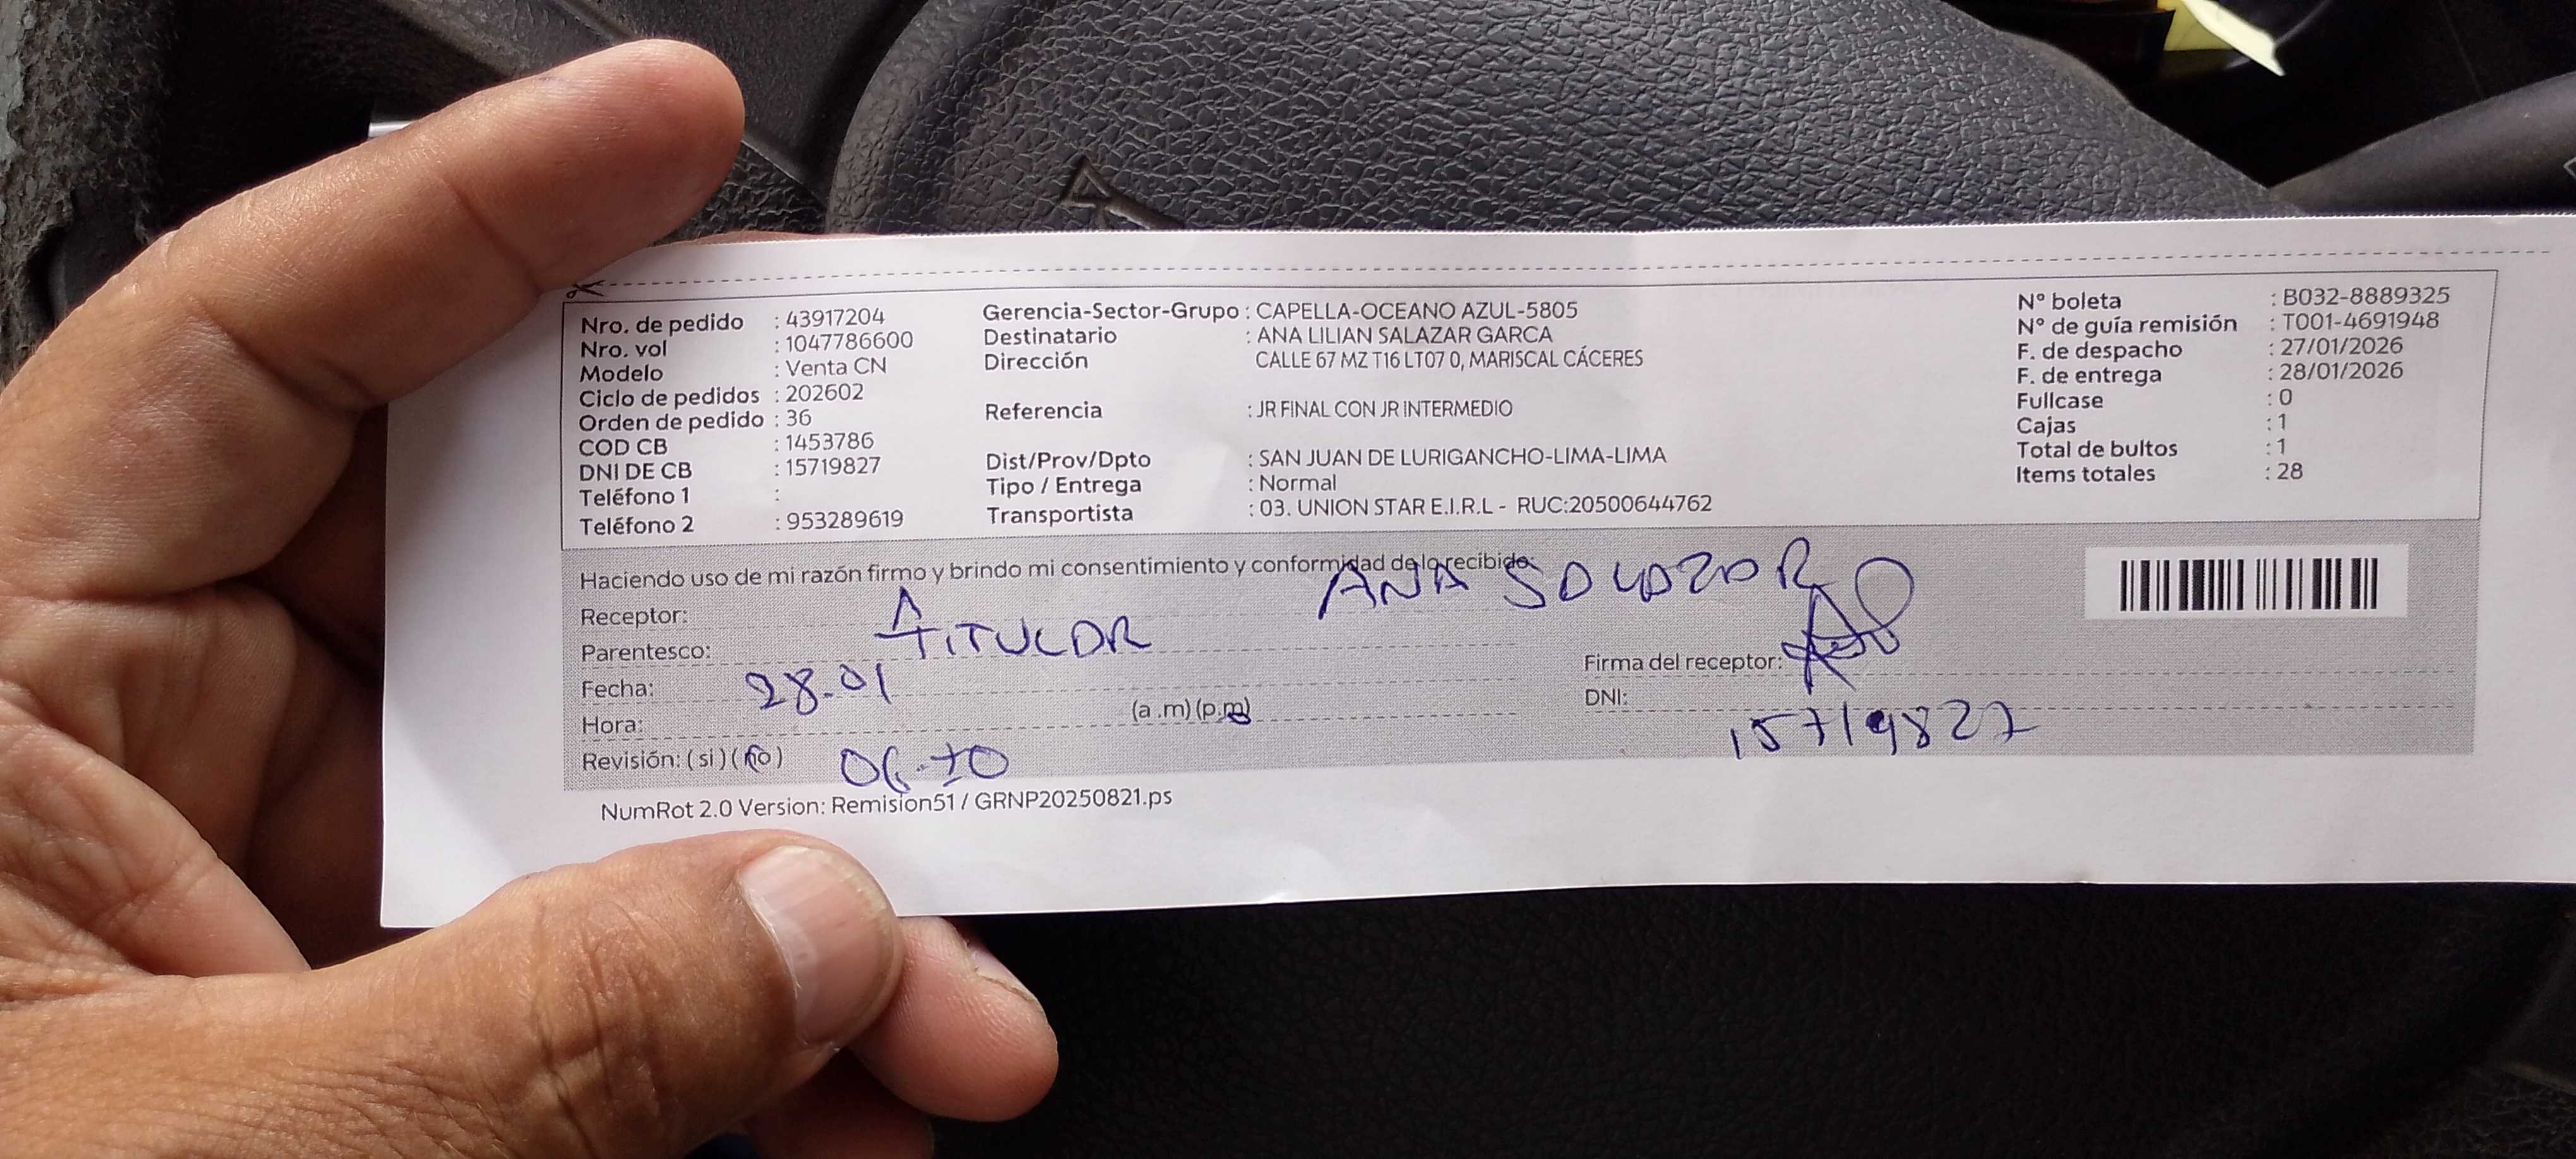 Nro. de pedido : 43917204
Nro. vol : 1047786600
Modelo : Venta CN
Ciclo de pedidos : 202602
Orden de pedido : 36
COD CB : 1453786
DNI DE CB : 15719827
Teléfono 1 :
Teléfono 2 : 953289619
Gerencia-Sector-Grupo : CAPELLA-OCEANO AZUL-5805
Destinatario : ANA LILIAN SALAZAR GARCA
Dirección CALLE 67 MZ T16 LT07 0, MARISCAL CÁCERES
Referencia : JR FINAL CON JR INTERMEDIO
Dist/Prov/Dpto : SAN JUAN DE LURIGANCHO-LIMA-LIMA
Tipo / Entrega : Normal
Transportista : 03. UNION STAR E.I.R.L - RUC:20500644762
N° boleta : B032-8889325
N° de guía remisión : T001-4691948
F. de despacho : 27/01/2026
F. de entrega : 28/01/2026
Fullcase : 0
Cajas : 1
Total de bultos : 1
Items totales : 28
Haciendo uso de mi razón firmo y brindo mi consentimiento y conformidad de lo recibido:
Receptor: ANA SALAZAR
Parentesco: TITULAR
Fecha: 28-01
Hora: (a .m) (p.m)
Revisión: ( si ) ( no )
Firma del receptor:
DNI: 15719827
NumRot 2.0 Version: Remision51 / GRNP20250821.ps